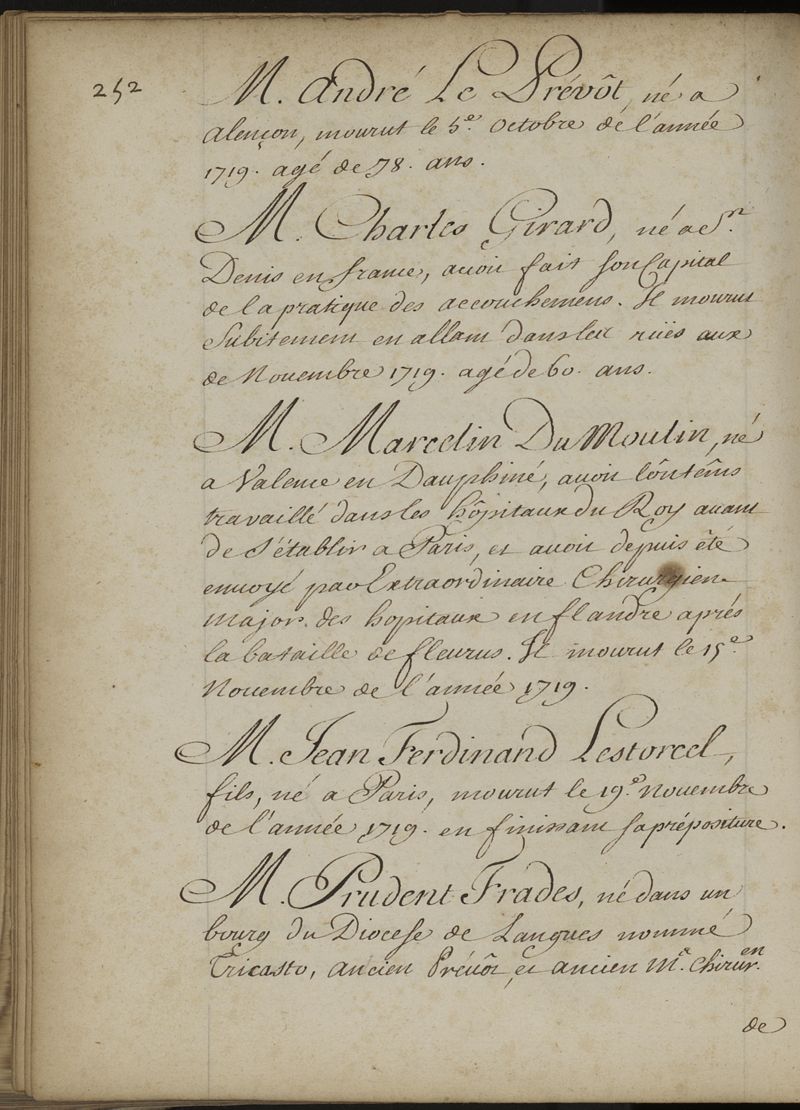 252
M. André Le Prévôt, né a
alençon, mourut le 5.e Octobre de l'année
1719. agé de 78. ans.
M. Charles Girard, né a St.
Denis en france, avoit fait son Capital
de la pratique des accouchemens. Il mourut
Subitement en allant dans les rües aux
de Novembre 1719. agé de 60. ans.
M. Marcelin Du Moulin, né
a Valence en Dauphiné, avoit lôntêms
travaillé dans les hôpitaux du Roy avant
de S'établir a Paris, et avoit depuis êté
envoyé par Extraordinaire Chirurgien-
major des hopitaux en flandre aprés
la bataille de fleurus. Il mourut le 15.e
Novembre de l'année 1719.
M. Jean Ferdinand Lestorcel,
fils, né a Paris, mourut le 19.e Novembre
de l'année 1719. en finissant sa prépositure.
M. Prudent Frades, né dans un
bourg du Diocese de Langres nommé
Tricasto, ancien Prévôt, et ancien M.e Chirur.en
de